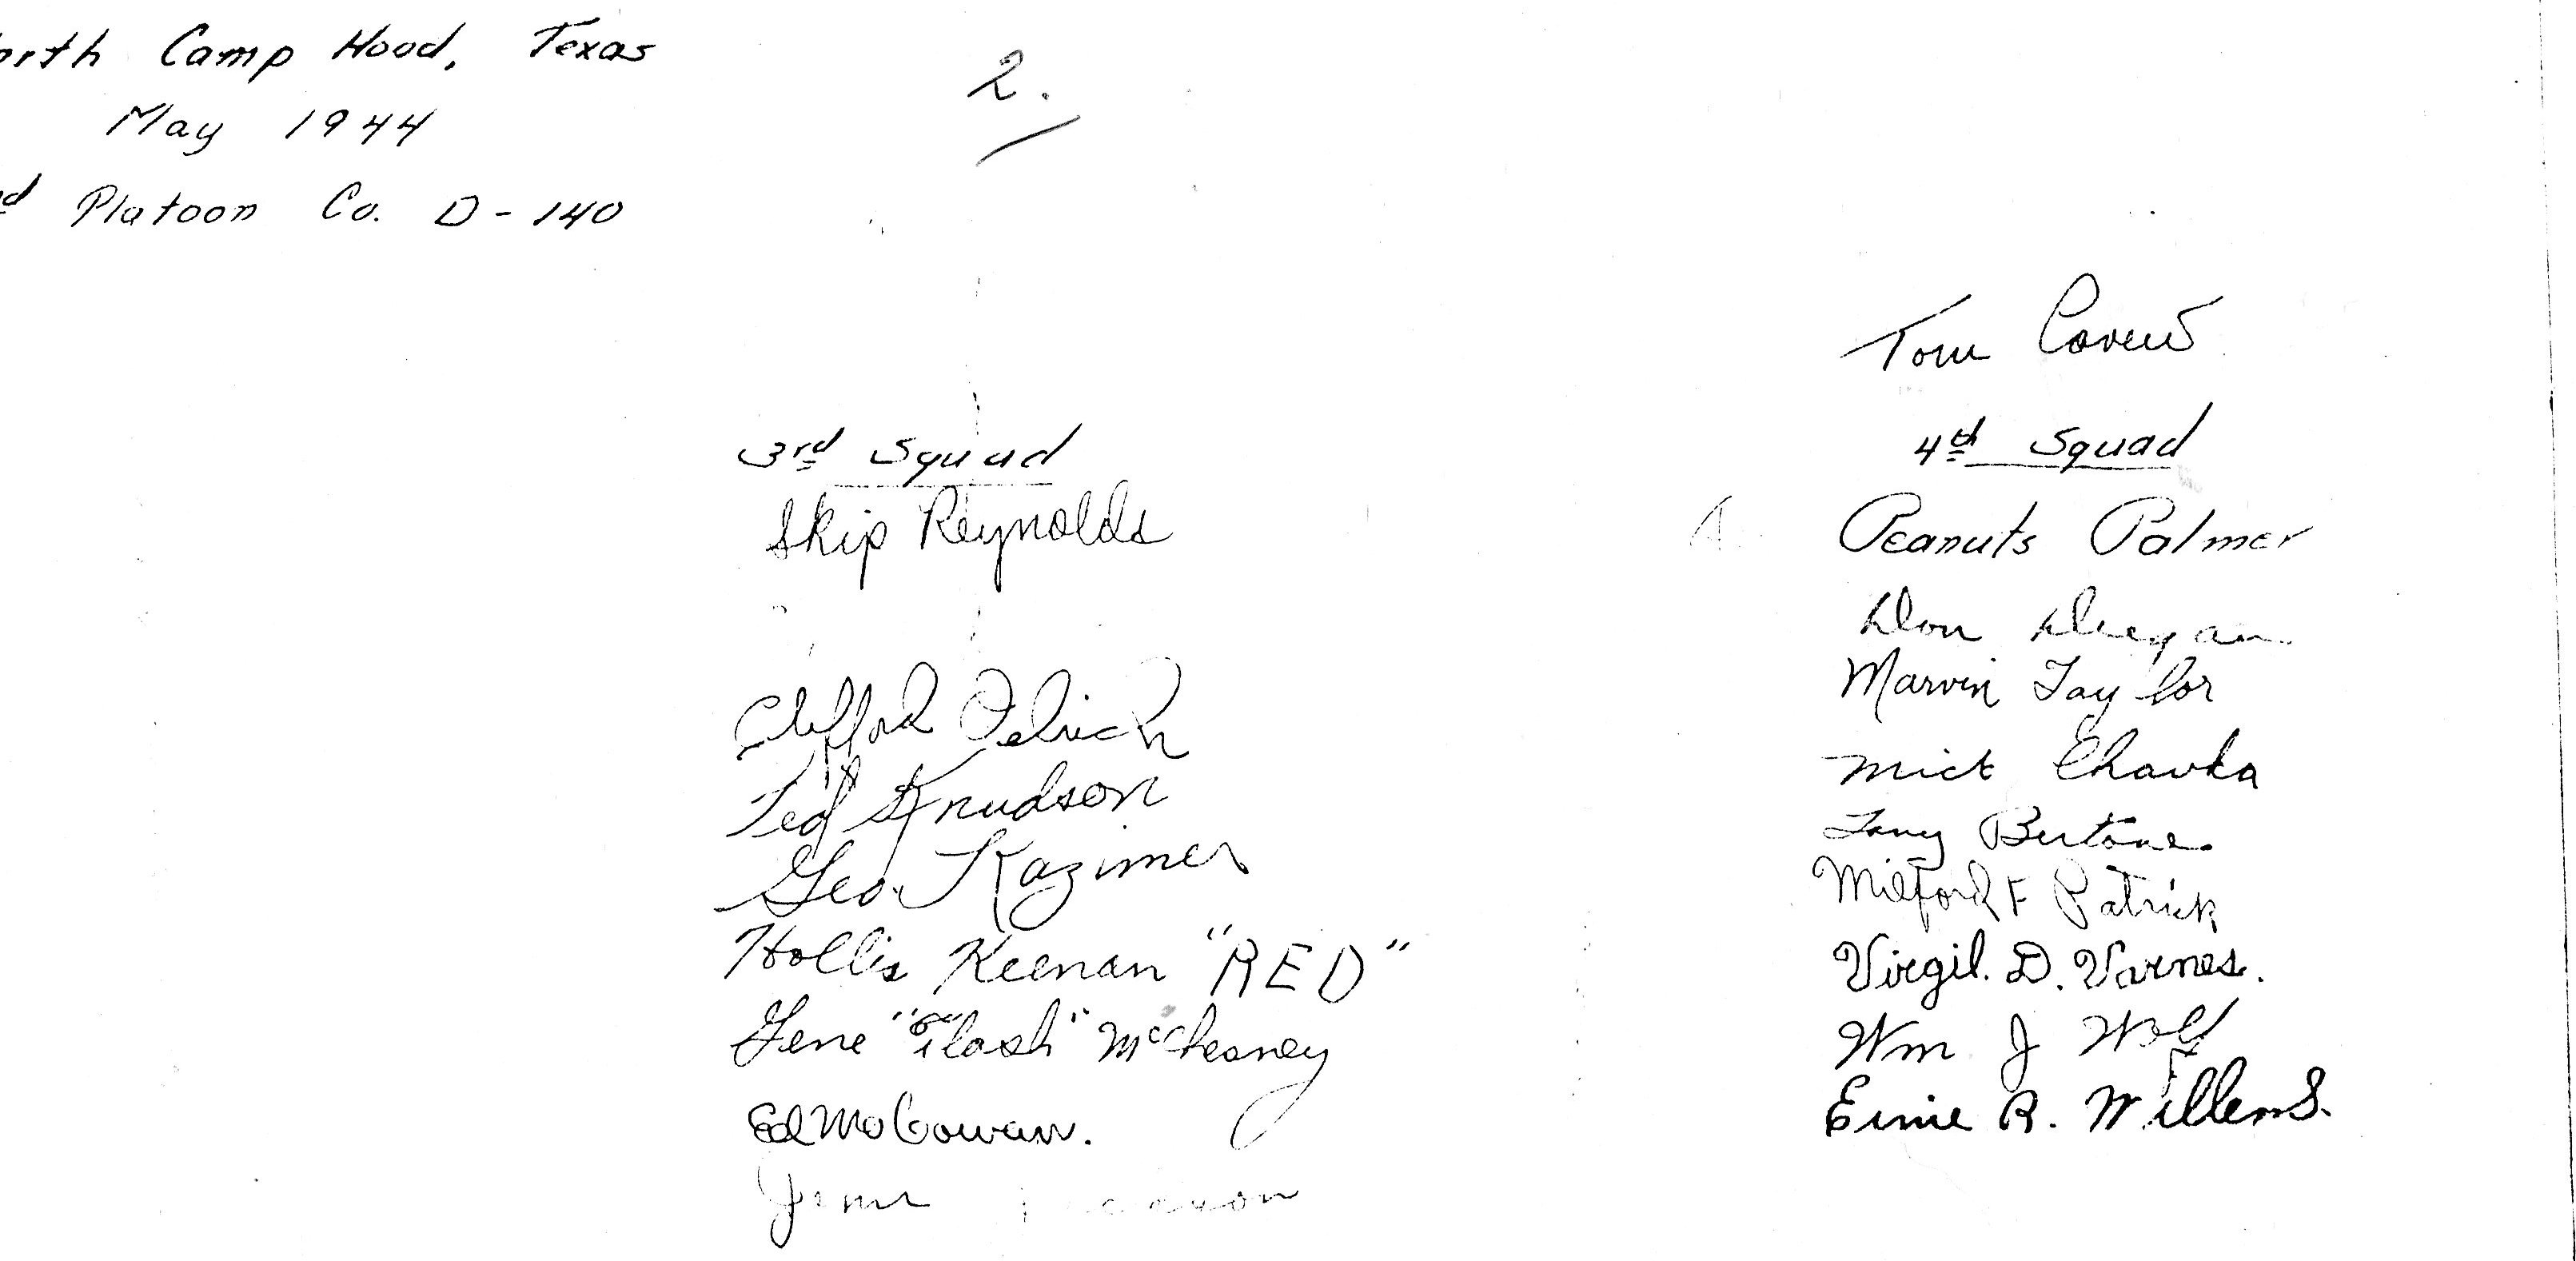 orth Camp Hood, Texas
May 1944
d Platoon Co. D-140
2.
3rd Squad
Skip Reynolds
Clifford
Ted Knudson
Geo. Kazimer
Hollis Keenan "RED"
Gene "Flash" McChesney
Ed McGowan.
Tom
4th Squad
Peanuts Palmer
Don
Marvin Taylor
Mick Chavka
Tony Bertone.
Milford F Patrick
Virgil. D. Varnes.
Wm J Wolf
Ernie R. Willems.